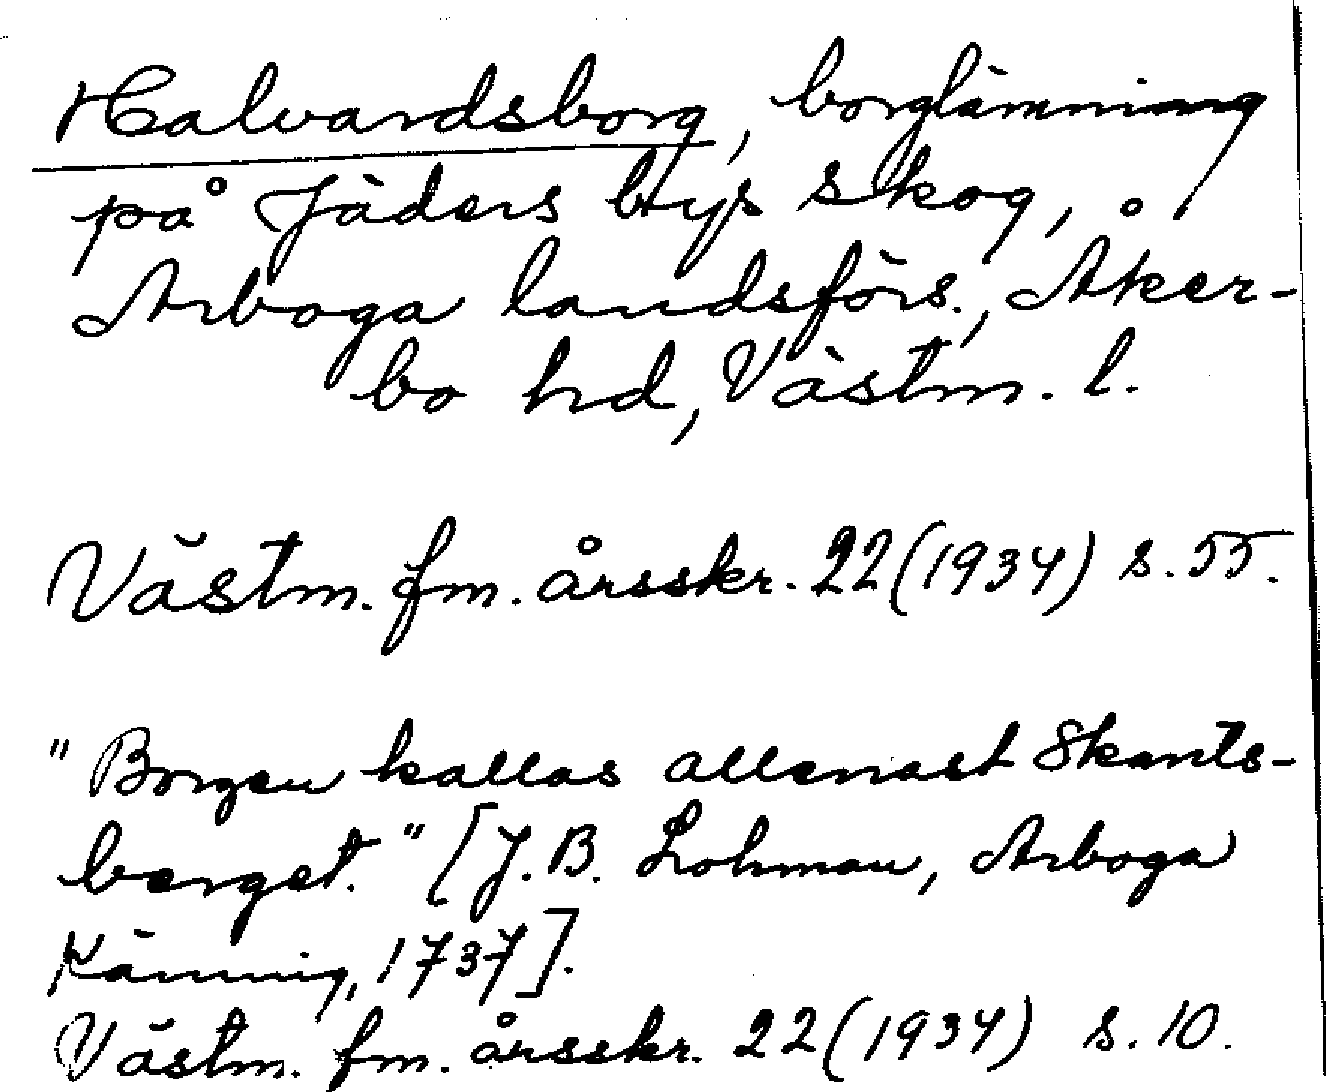 Halvardsborg, borglämning
på Jäders bys skog,
Arboga landsförs., Åker-
bo hd, Västm. l.
Västm. fm. årsskr. 22 (1934) s. 55.
"Borgen kallas allenast Skants-
berget." [J. B. Lohman, Arboga
Känning, 1737].
Västm. fm. årsskr. 22 (1934) s. 10.